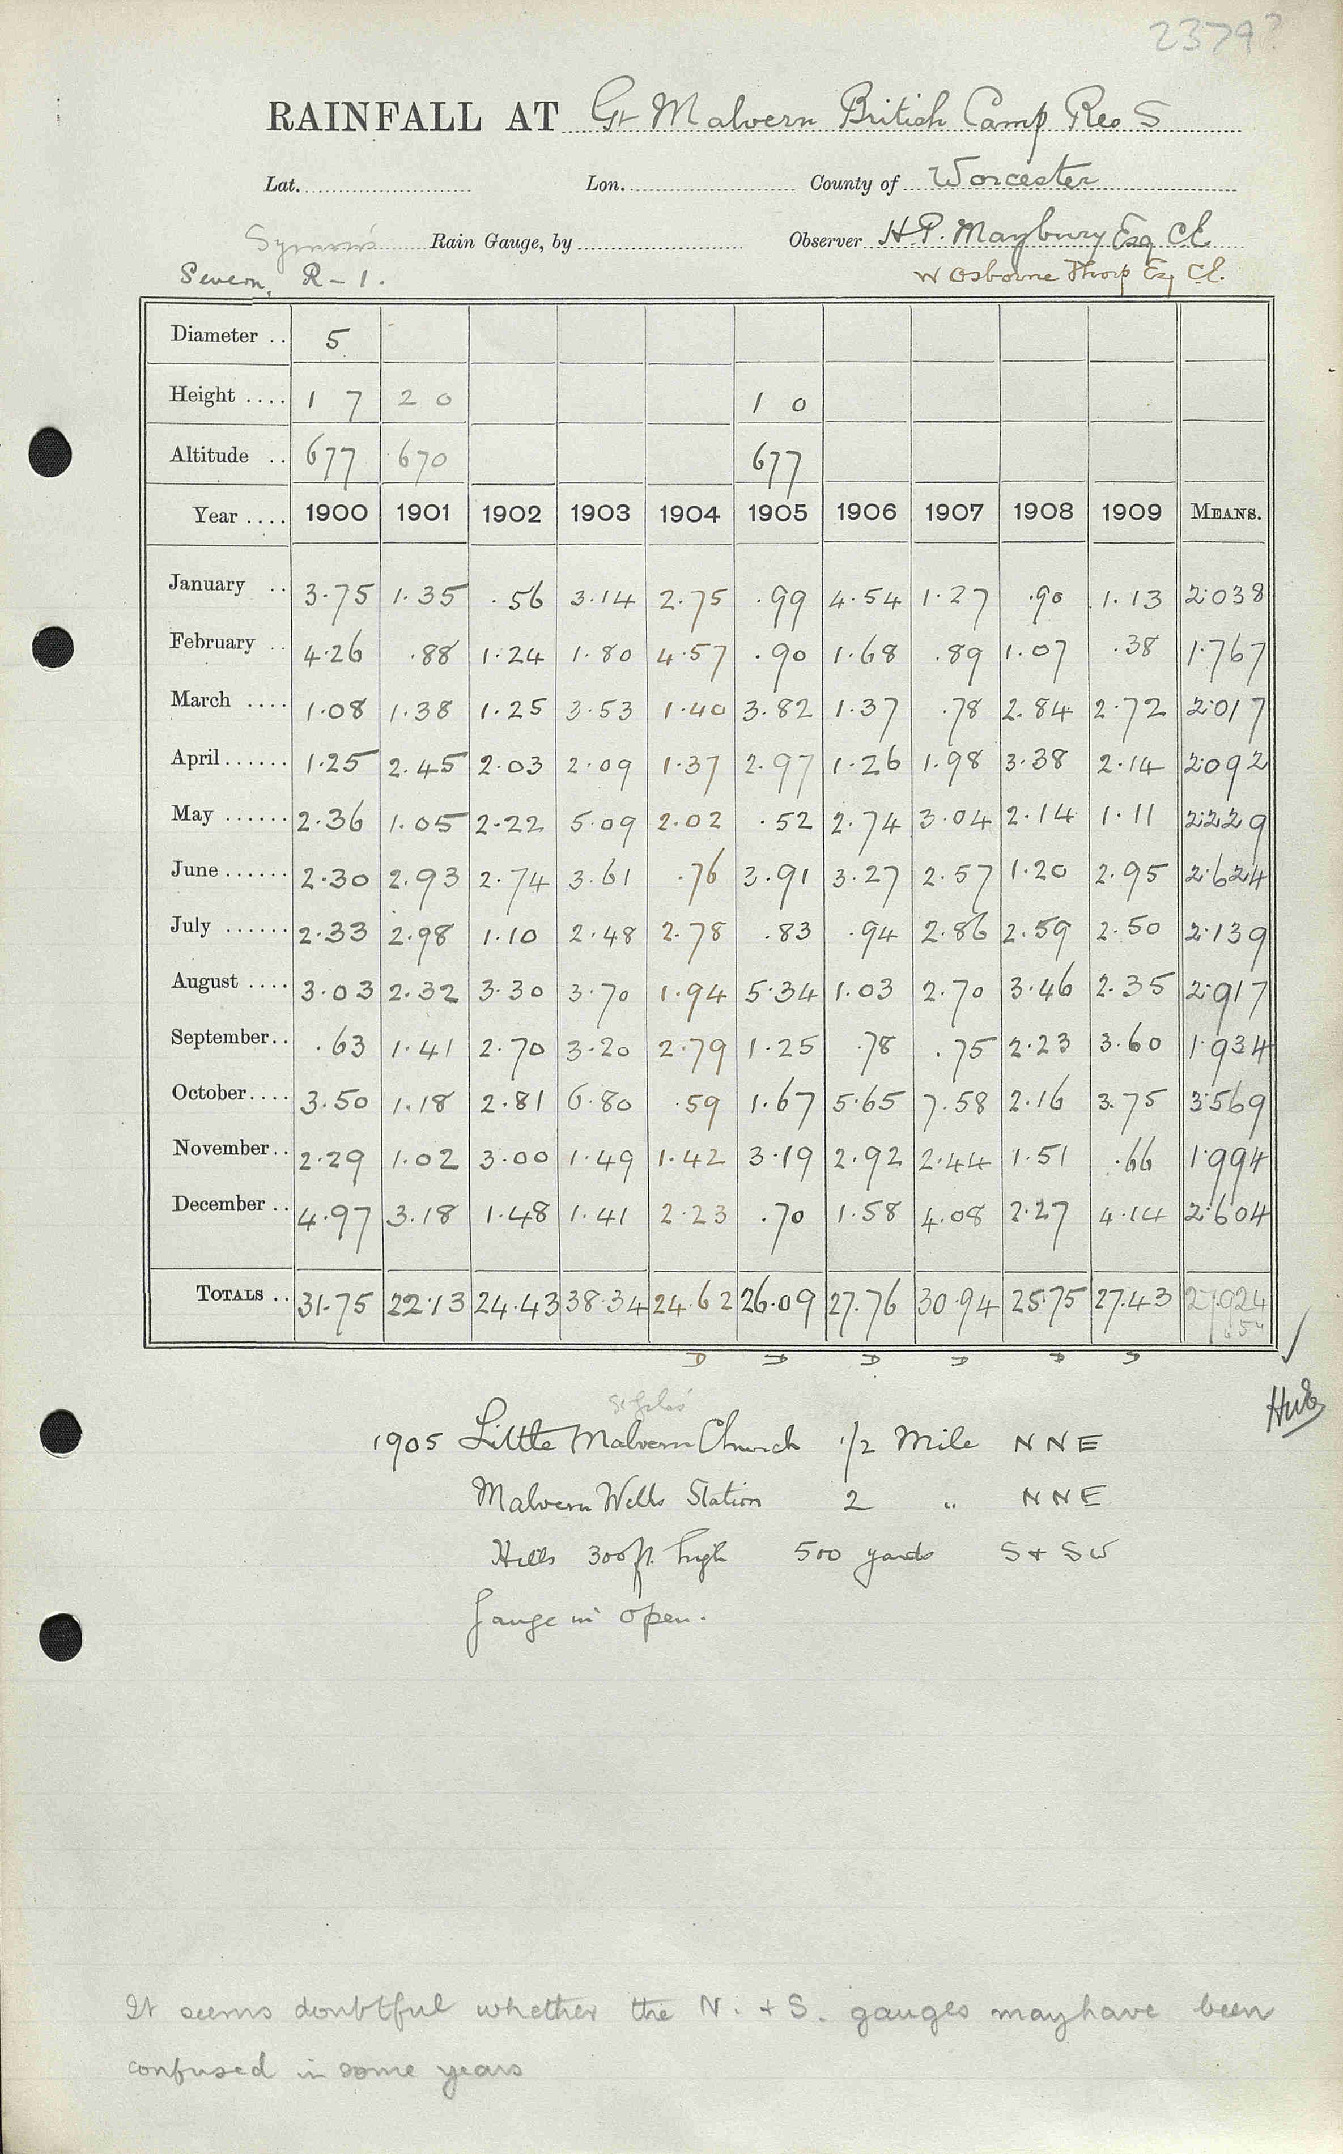 2379?
RAINFALL AT Gt Malvern British Camp Res S
Lat. Lon. County of Worcester
Symons Rain Gauge, by Observer H.P. Maybury Esq CE
Severn, R-1. W Osborne Thorp Esq CE.
Diameter .. 5
Height .... 1 7 2 0 1 0
Altitude .. 677 670 677
Year .... 1900 1901 1902 1903 1904 1905 1906 1907 1908 1909 MEANS.
January .. 3.75 1.35 .56 3.14 2.75 .99 4.54 1.27 .90 1.13 2.038
February .. 4.26 .88 1.24 1.80 4.57 .90 1.68 .89 1.07 .38 1.767
March .... 1.08 1.38 1.25 3.53 1.40 3.82 1.37 .78 2.84 2.72 2.017
April ...... 1.25 2.45 2.03 2.09 1.37 2.97 1.26 1.98 3.38 2.14 2.092
May ...... 2.36 1.05 2.22 5.09 2.02 .52 2.74 3.04 2.14 1.11 2.229
June ...... 2.30 2.93 2.74 3.61 .76 3.91 3.27 2.57 1.20 2.95 2.624
July ...... 2.33 2.98 1.10 2.48 2.78 .83 .94 2.86 2.59 2.50 2.139
August .... 3.03 2.32 3.30 3.70 1.94 5.34 1.03 2.70 3.46 2.35 2.917
September.. .63 1.41 2.70 3.20 2.79 1.25 .78 .75 2.23 3.60 1.934
October.... 3.50 1.18 2.81 6.80 .59 1.67 5.65 7.58 2.16 3.75 3.569
November.. 2.29 1.02 3.00 1.49 1.42 3.19 2.92 2.44 1.51 .66 1.994
December .. 4.97 3.18 1.48 1.41 2.23 .70 1.58 4.08 2.27 4.14 2.604
TOTALS .. 31.75 22.13 24.43 38.34 24.62 26.09 27.76 30.94 25.75 27.43 27.024
D D D D D D
St Giles'
1905 Little Malvern Church 1/2 Mile NNE
Malvern Wells Station 2 " NNE
Hills 300 ft. high 500 yards S + SW
Gauge in open.
It seems doubtful whether the N. + S. gauges may have been
confused in some years